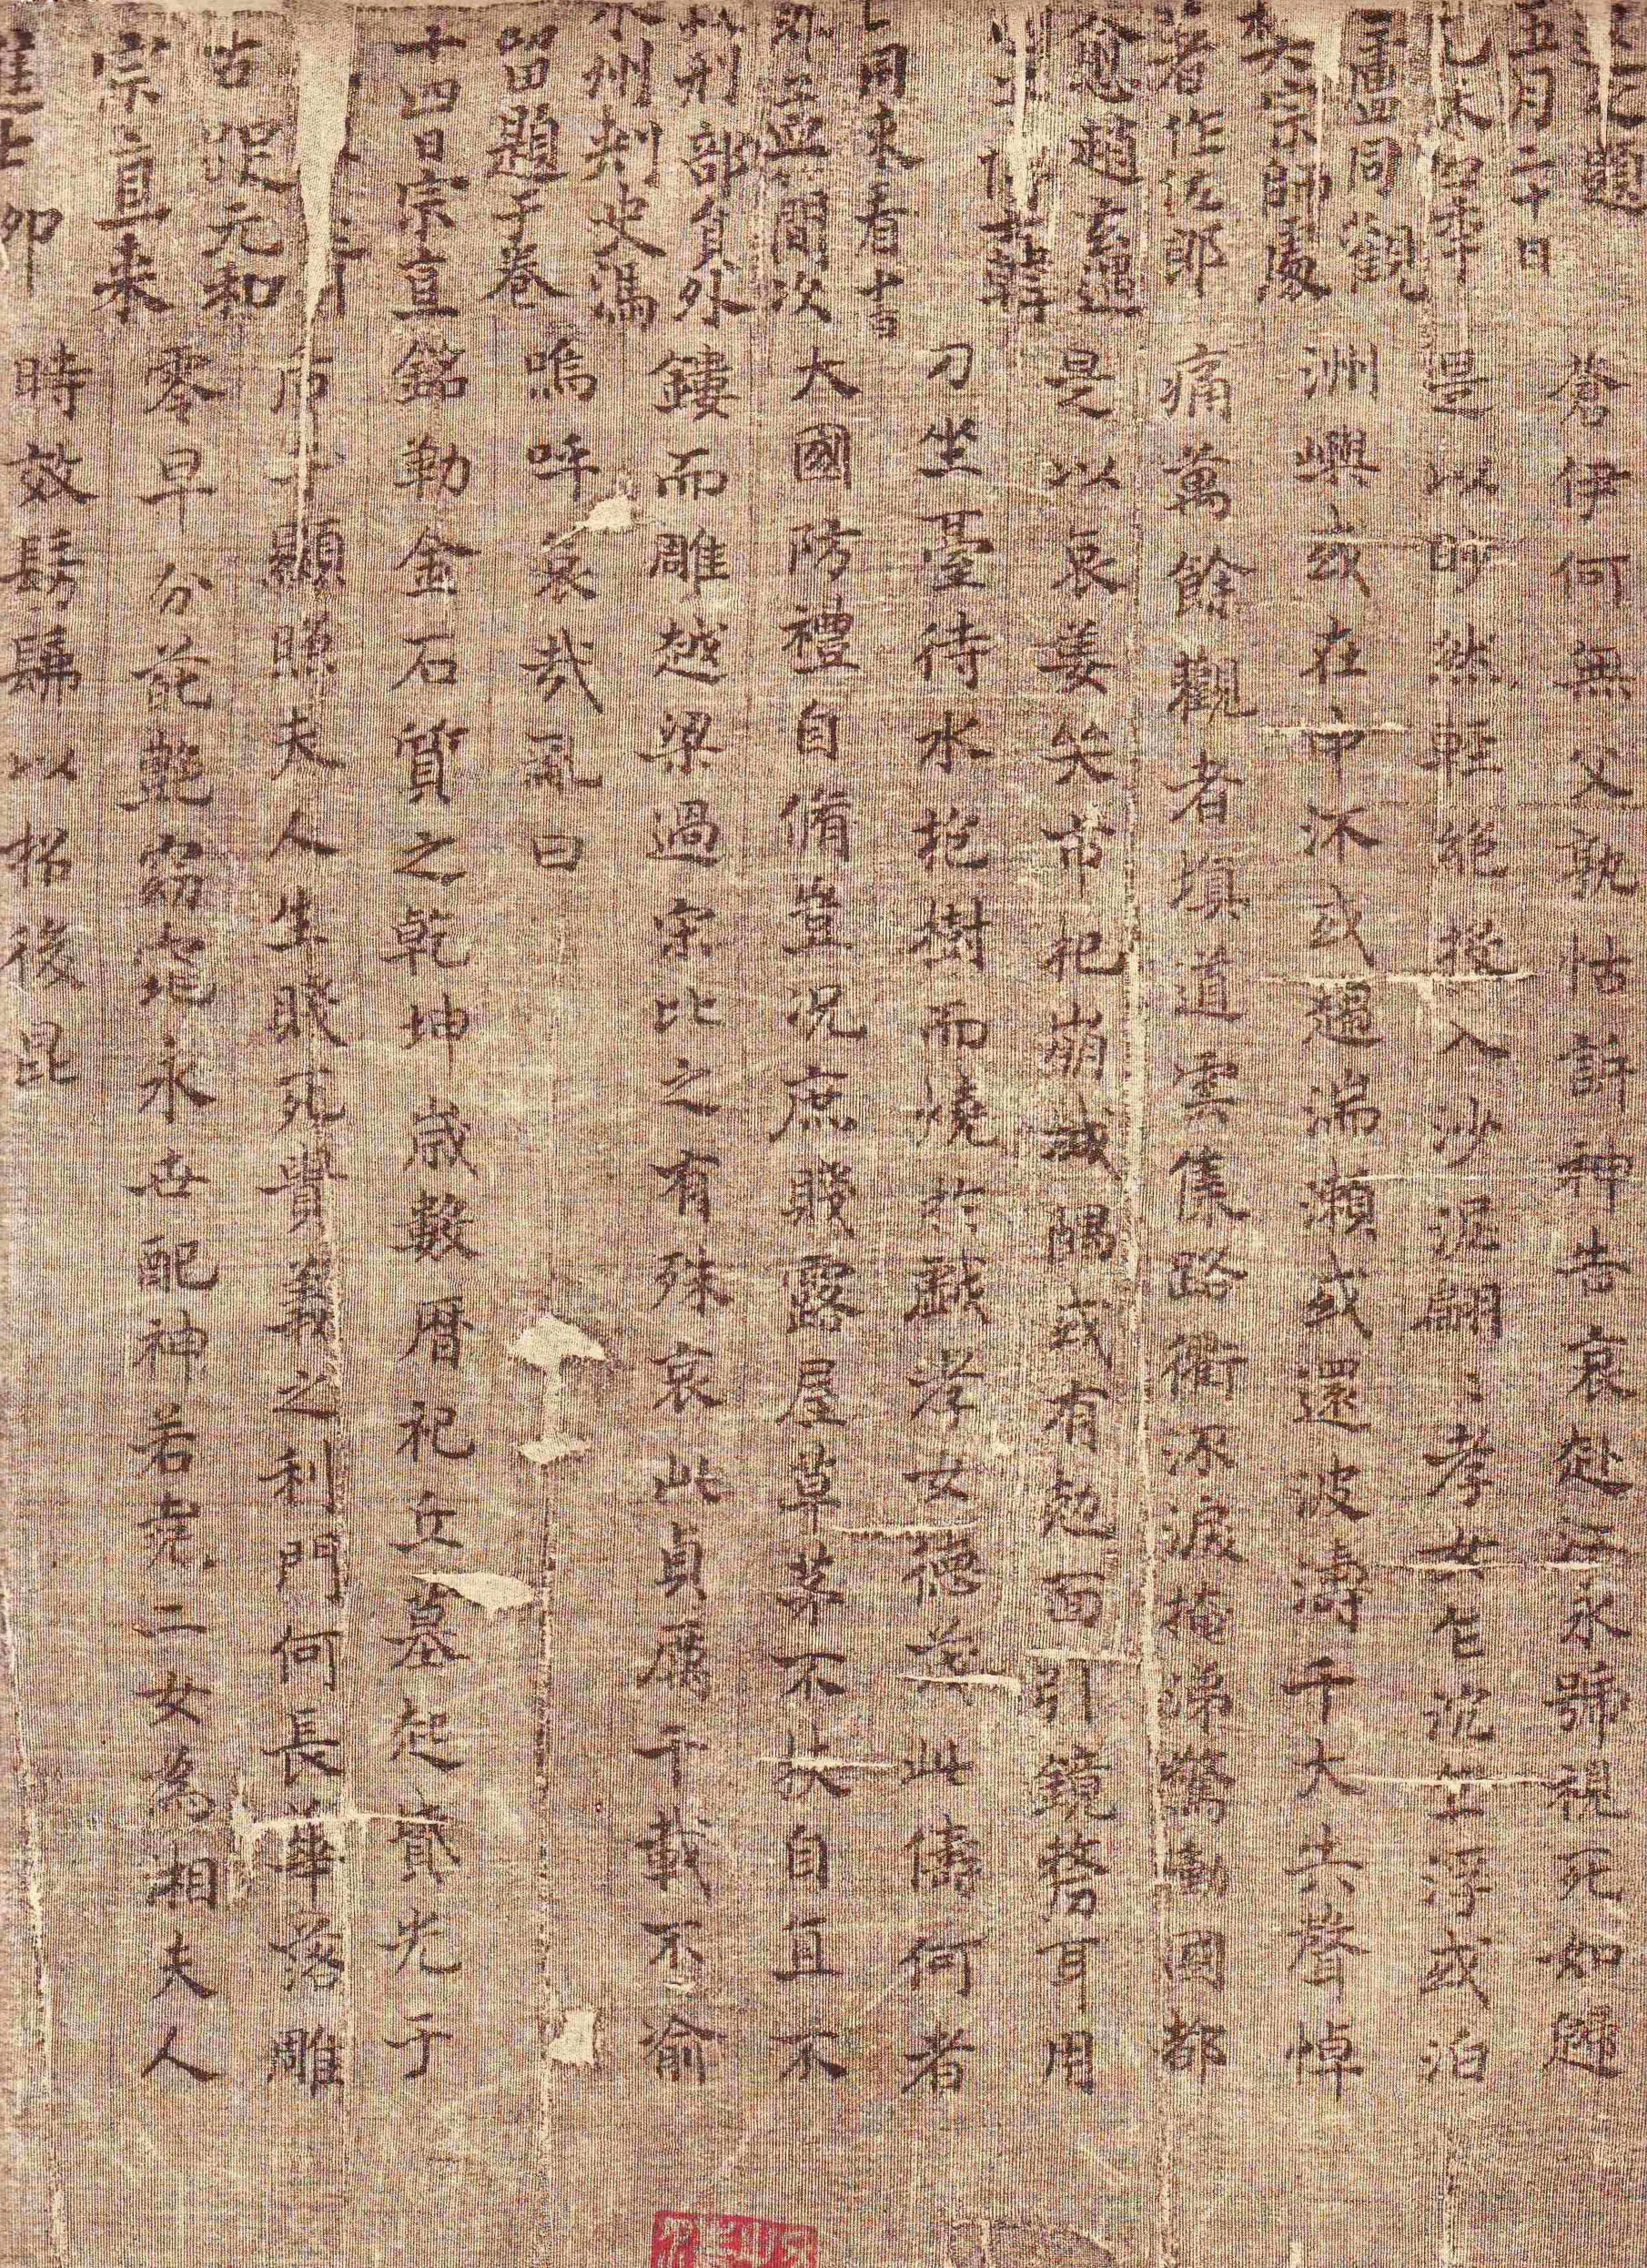 題
五月二十日
四年
盧同觀
樊宗師處
著作佐郎
愈趙玄遇
博士韓
同來看
孟簡次
刑部員外
永州刺史馮
留題于卷
十四日宗直
元和
宗直来
進士
蒼伊何無父孰怙訴神告哀赴江永號視死如歸
是以眇然輕絕投入沙泥翩〻孝女乍沉乍浮或泊
洲嶼或在中沠或趨湍瀨或還波濤千夫失聲悼
痛萬餘觀者填道雲集路衢泳淚掩涕驚慟國都
是以哀姜哭市杞崩城隅或有尅面引鏡剺耳用
刀坐臺待水抱樹而燒於戲孝女德茂此儔何者
大國防禮自脩豈況庶賤露屋草茅不扶自直不
鏤而雕越梁過宋比之有殊哀此貞厲千載不渝
嗚呼哀哉亂曰
銘勒金石質之乾坤歲數曆祀丘墓起墳光于
后土顯照夫人生賤死貴義之利門何長華落雕
零早分葩艷窈窕永世配神若堯二女為湘夫人
時效髣髴以招後昆